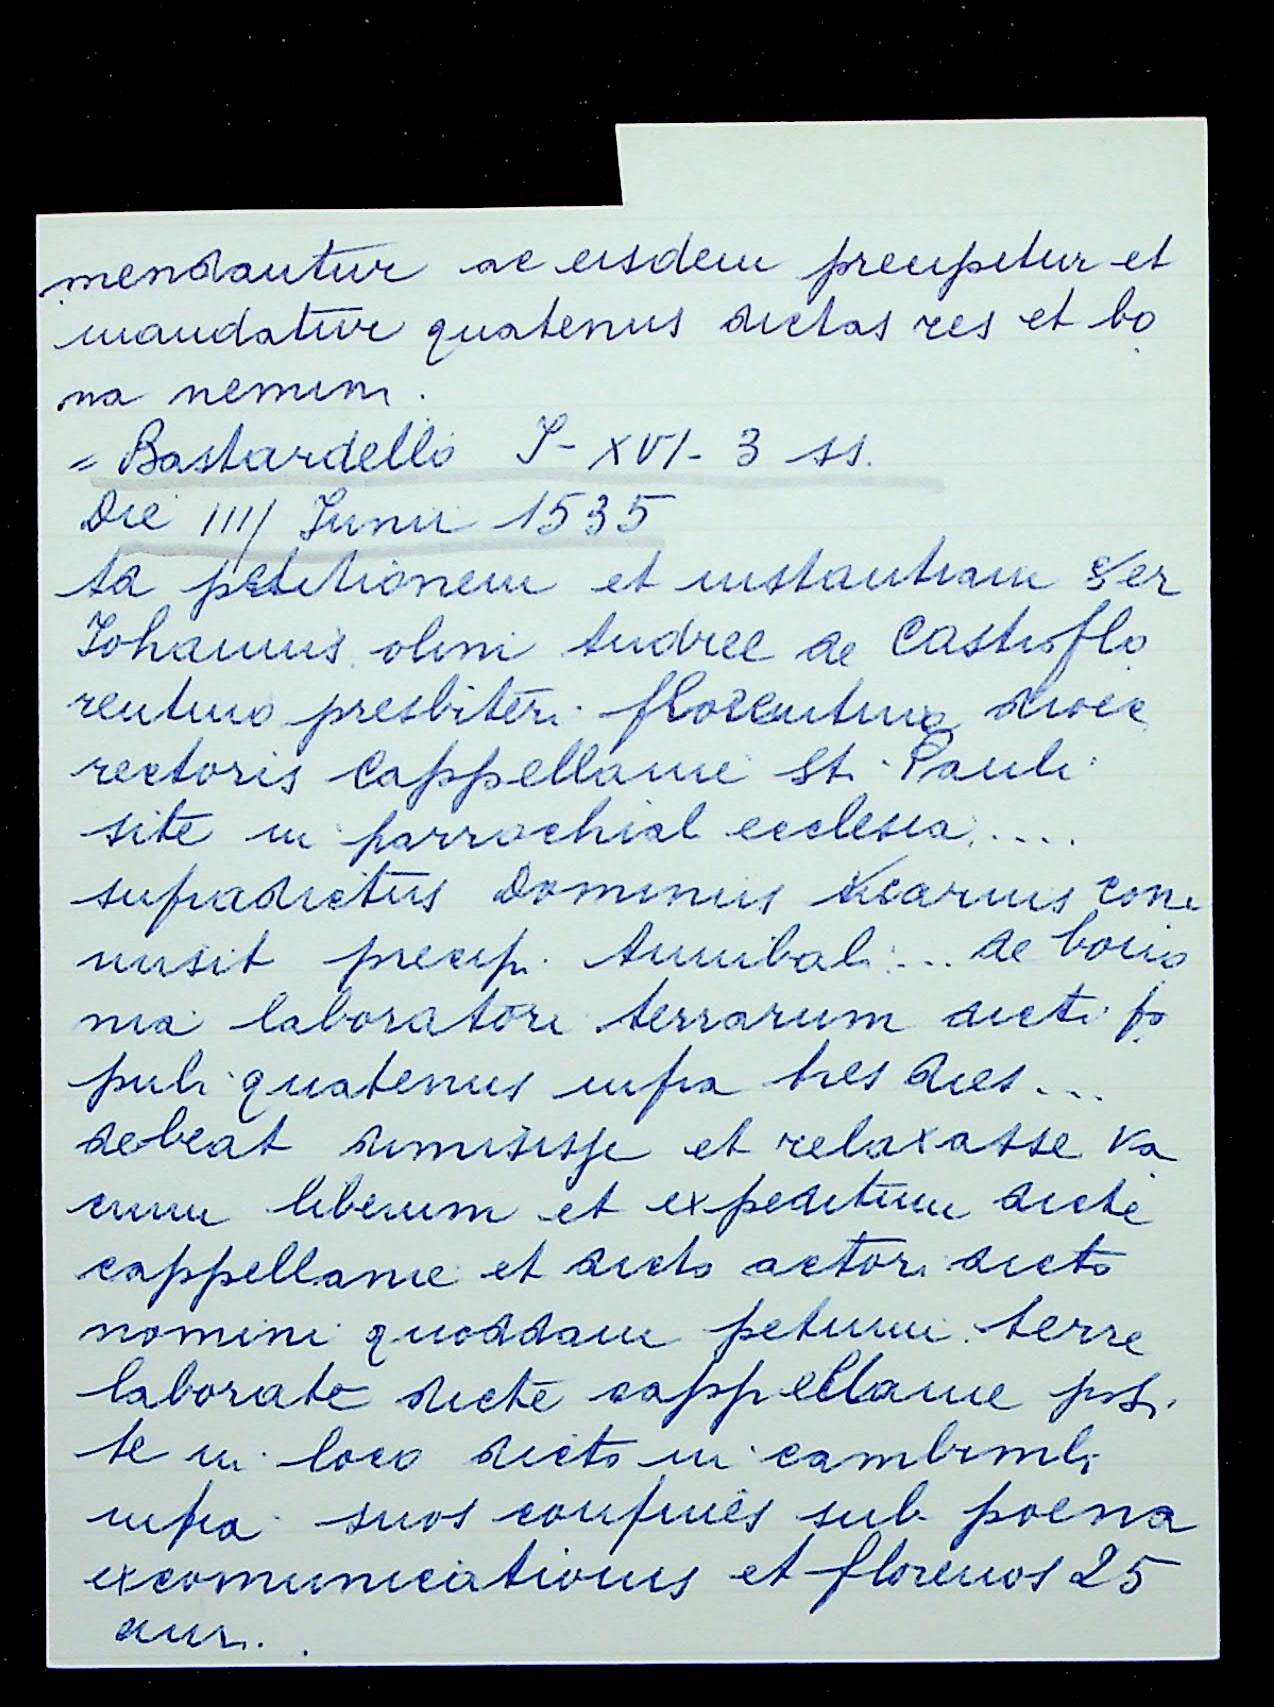 mendautur ac eisdem precipitur et
mandatur quatenus dictas res et bo
na nemini.
= Bastardello I - XVI - 3 ss.
Die IIII Junii 1535
ta petitionem et instantiam Ser
Johannis olim Andree de Castroflo
rentino presbiteri florentino dioec
rectoris Cappellanie Sti Pauli
site in parrochial ecclesia....
supradictus Dominus Vicarius com
misit precip. Annibali... de
nia laboratori terrarum dicti po
puli quatenus infra tres dies...
debeat dimisisse et relaxasse va
cuum liberum et expeditum dicte
cappellanie et dicto actori dicto
nomini quoddam petium terre
laborate dicte cappellanie posi
te in loco dicto in
infra suos confines sub poena
excomunicationis et florenos 25
auri.